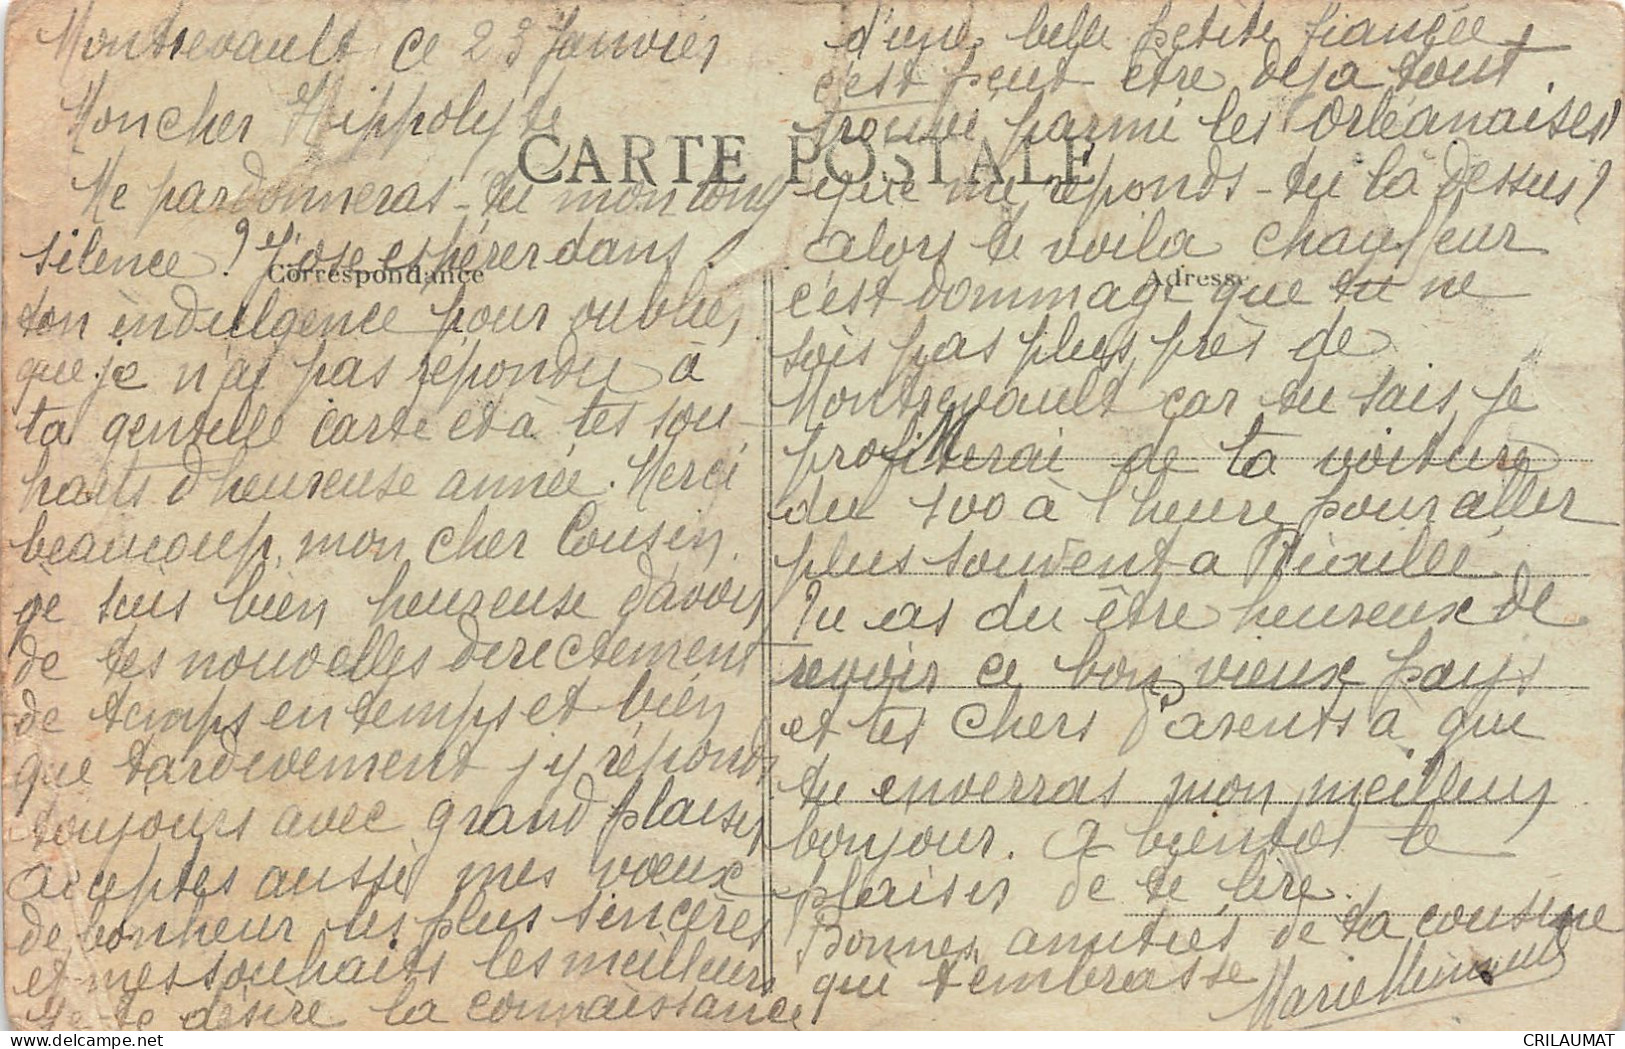 Montrevault ce 23 Janvier
Mon cher Hippolyte
CARTE POSTALE
Me pardonneras-tu mon long
silence? J'ose espérer dans
Correspondance
ton indulgence pour oublier
que je n'ai pas répondu à
ta gentille carte et à tes sou-
haits d'heureuse année. Merci
beaucoup, mon cher Cousin.
je suis bien heureuse d'avoir
de tes nouvelles derectement
de temps en temps et bien
que tardevement j'y réponds
toujours avec grand plaisir
acceptes aussi mes vœux
de bonheur les plus sincères
et mes souhaits les meilleurs
je te désire la connaissance
d'une belle petite fiancée,
c'est peut être déja tout
trouvé parmi les Orléanaises
que me reponds-tu là dessus?
alors te voila chauffeur
Adresse
c'est dommage que tu ne
sois pas plus près de
Montrevault car tu sais je
profiterai de ta voiture
du 100 à l'heure pour aller
plus souvent a
Tu as du être heureux de
revoir ce bon vieux pays
et tes chers Parents a que
tu enverras mon meilleur
bonjour. A bientot le
plaisir de te lire
Bonnes amitiés de ta cousine
qui t'embrasse
Marie
CRILAUMAT